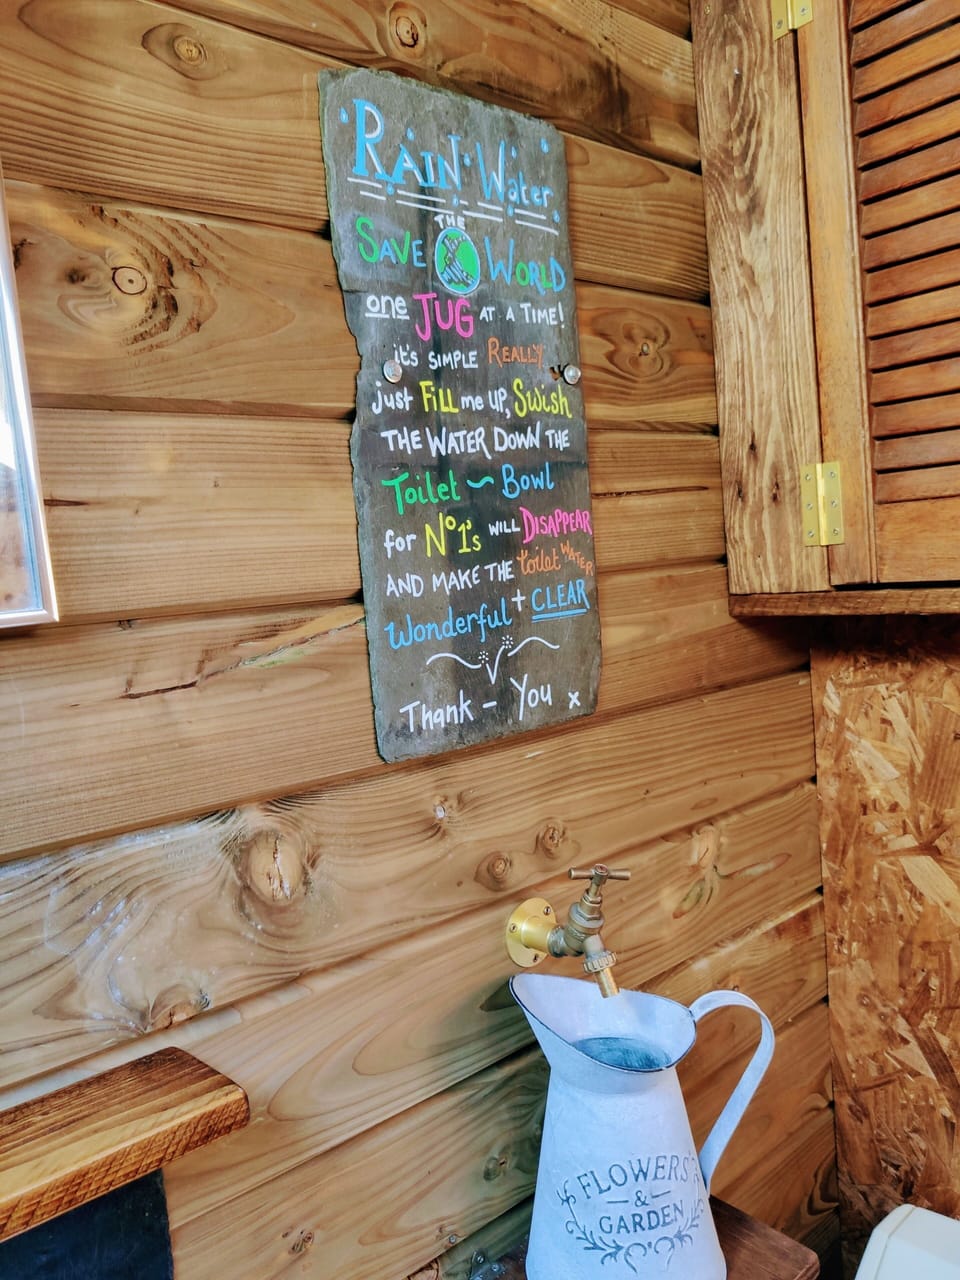 RAIN Water
THE
SAVE WORLD
one JUG AT A TIME!
it's SIMPLE REALLY
just Fill me UP, Swish
THE WATER DOWN THE
Toilet ~ Bowl
for Nº1's WILL DISAPPEAR
AND MAKE THE toilet WATER
Wonderful + CLEAR
Thank - You x
FLOWERS
&
GARDEN